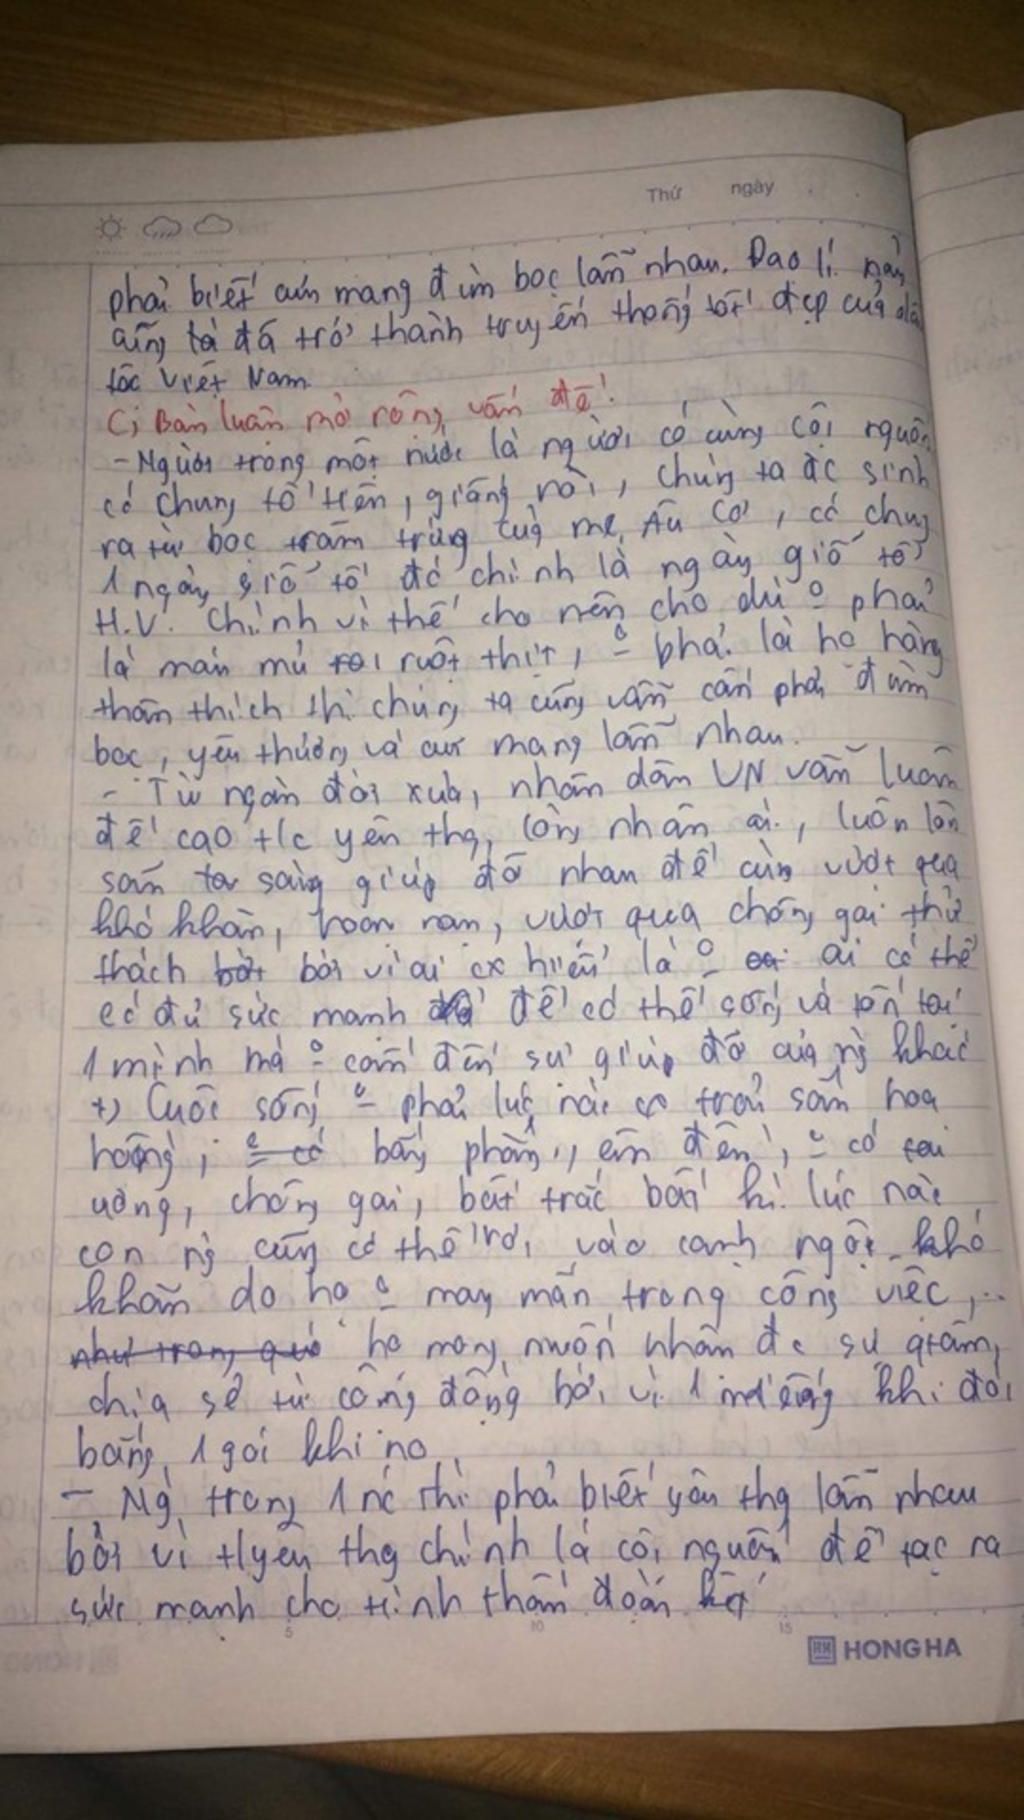 Thứ ngày
phải biết cưu mang đùm bọc lẫn nhau. Đạo lí này
cũng ta đã trở thành truyền thống tốt đẹp của dân
tộc Việt Nam
C; Bàn luận mở rộng vấn đề:
- Người trong một nước là người có cùng cội nguồn
có chung tổ tiên, giống nòi, chúng ta đc sinh
ra từ bọc trăm trứng của mẹ Âu Cơ, có chung
1 ngày giỗ tổ đó chính là ngày giỗ tổ
H.V. Chính vì thế cho nên cho dù phải
là máu mủ ruột thịt, phải là họ hàng
thân thích thì chúng ta cũng vẫn cần phải đùm
bọc, yêu thương và cưu mang lẫn nhau.
- Từ ngàn đời xưa, nhân dân VN vẫn luôn
đề cao t/c yêu thg, lòng nhân ái, luôn luôn
sẵn sàng giúp đỡ nhau để cùng vượt qua
khó khăn, hoạn nạn, vượt qua chông gai thử
thách bởi vì ai cx hiểu là ai có thể
có đủ sức mạnh để có thể sống và tồn tại
1 mình mà cần đến sự giúp đỡ của ng khác
+) Cuộc sống phải lúc nào cx trải sẵn hoa
hồng, bằng phẳng, êm đềm, có tai
ương, chông gai, bất trắc bất kì lúc nào
con ng cũng có thể rơi vào cảnh ngộ khó
khăn do họ may mắn trong công việc,...
như trong quá họ mong muốn nhận đc sự quan
chia sẻ từ cộng đồng bởi vì 1 miếng khi đói
bằng 1 gói khi no
- Ng trong 1 nc thì phải biết yêu thg lẫn nhau
bởi vì t/yêu thg chính là cội nguồn để tạo ra
sức mạnh cho tinh thần đoàn kết
5 10 15
HONG HA